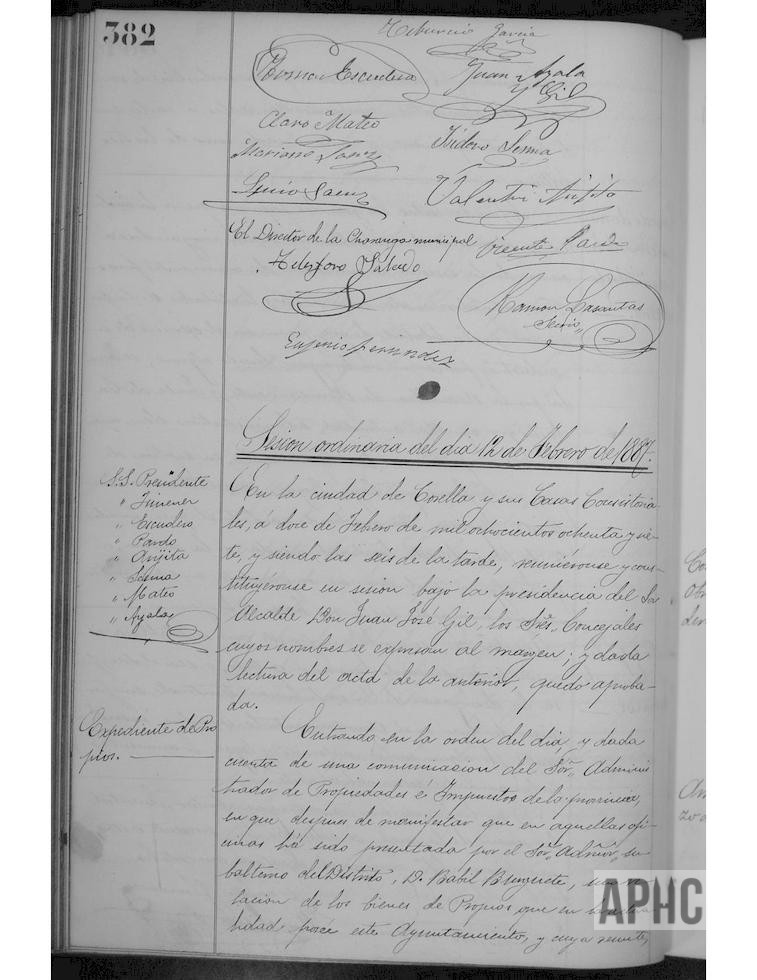 382
Tiburcio Garcia
Roman Escudero
Juan Ayala
y Gil
Claro Mateo
Isidoro Sesma
Mariano Sanz
Lucio Saenz
Valentin Arijita
El Director de la Charanga municipal
Vicente Pardo
Telesforo Salcedo
Ramon Lasantas
Secrio
Eugenio Fernandez
Sesion ordinaria del dia 12 de Febrero de 1887.
S.S. Presidente
" Jimenez
" Escudero
" Pardo
" Arijita
" Sesma
" Mateo
" Ayala
En la ciudad de Corella y sus Casas Consistoria-
les, á doce de Febrero de mil ochocientos ochenta y sie-
te, y siendo las seis de la tarde, reuniéronse y cons-
tituyéronse en sesion bajo la presidencia del Sor
Alcalde Don Juan José Gil, los Sres. Concejales
cuyos nombres se expresan al margen; y dada
lectura del acta de la anterior, quedó aproba-
da.
Expediente de Pro
pios.
Entrando en la orden del dia, y dada
cuenta de una comunicacion del Sor. Adminis
trador de Propiedades é Impuestos de la provincia,
en que despues de manifestar que en aquellas ofi-
cinas ha sido presentada por el Sor. Admor. su-
balterno del Distrito, D. Babil
lacion de los bienes de Propios que en
lidad posee este Ayuntamiento, y cuya
APHC